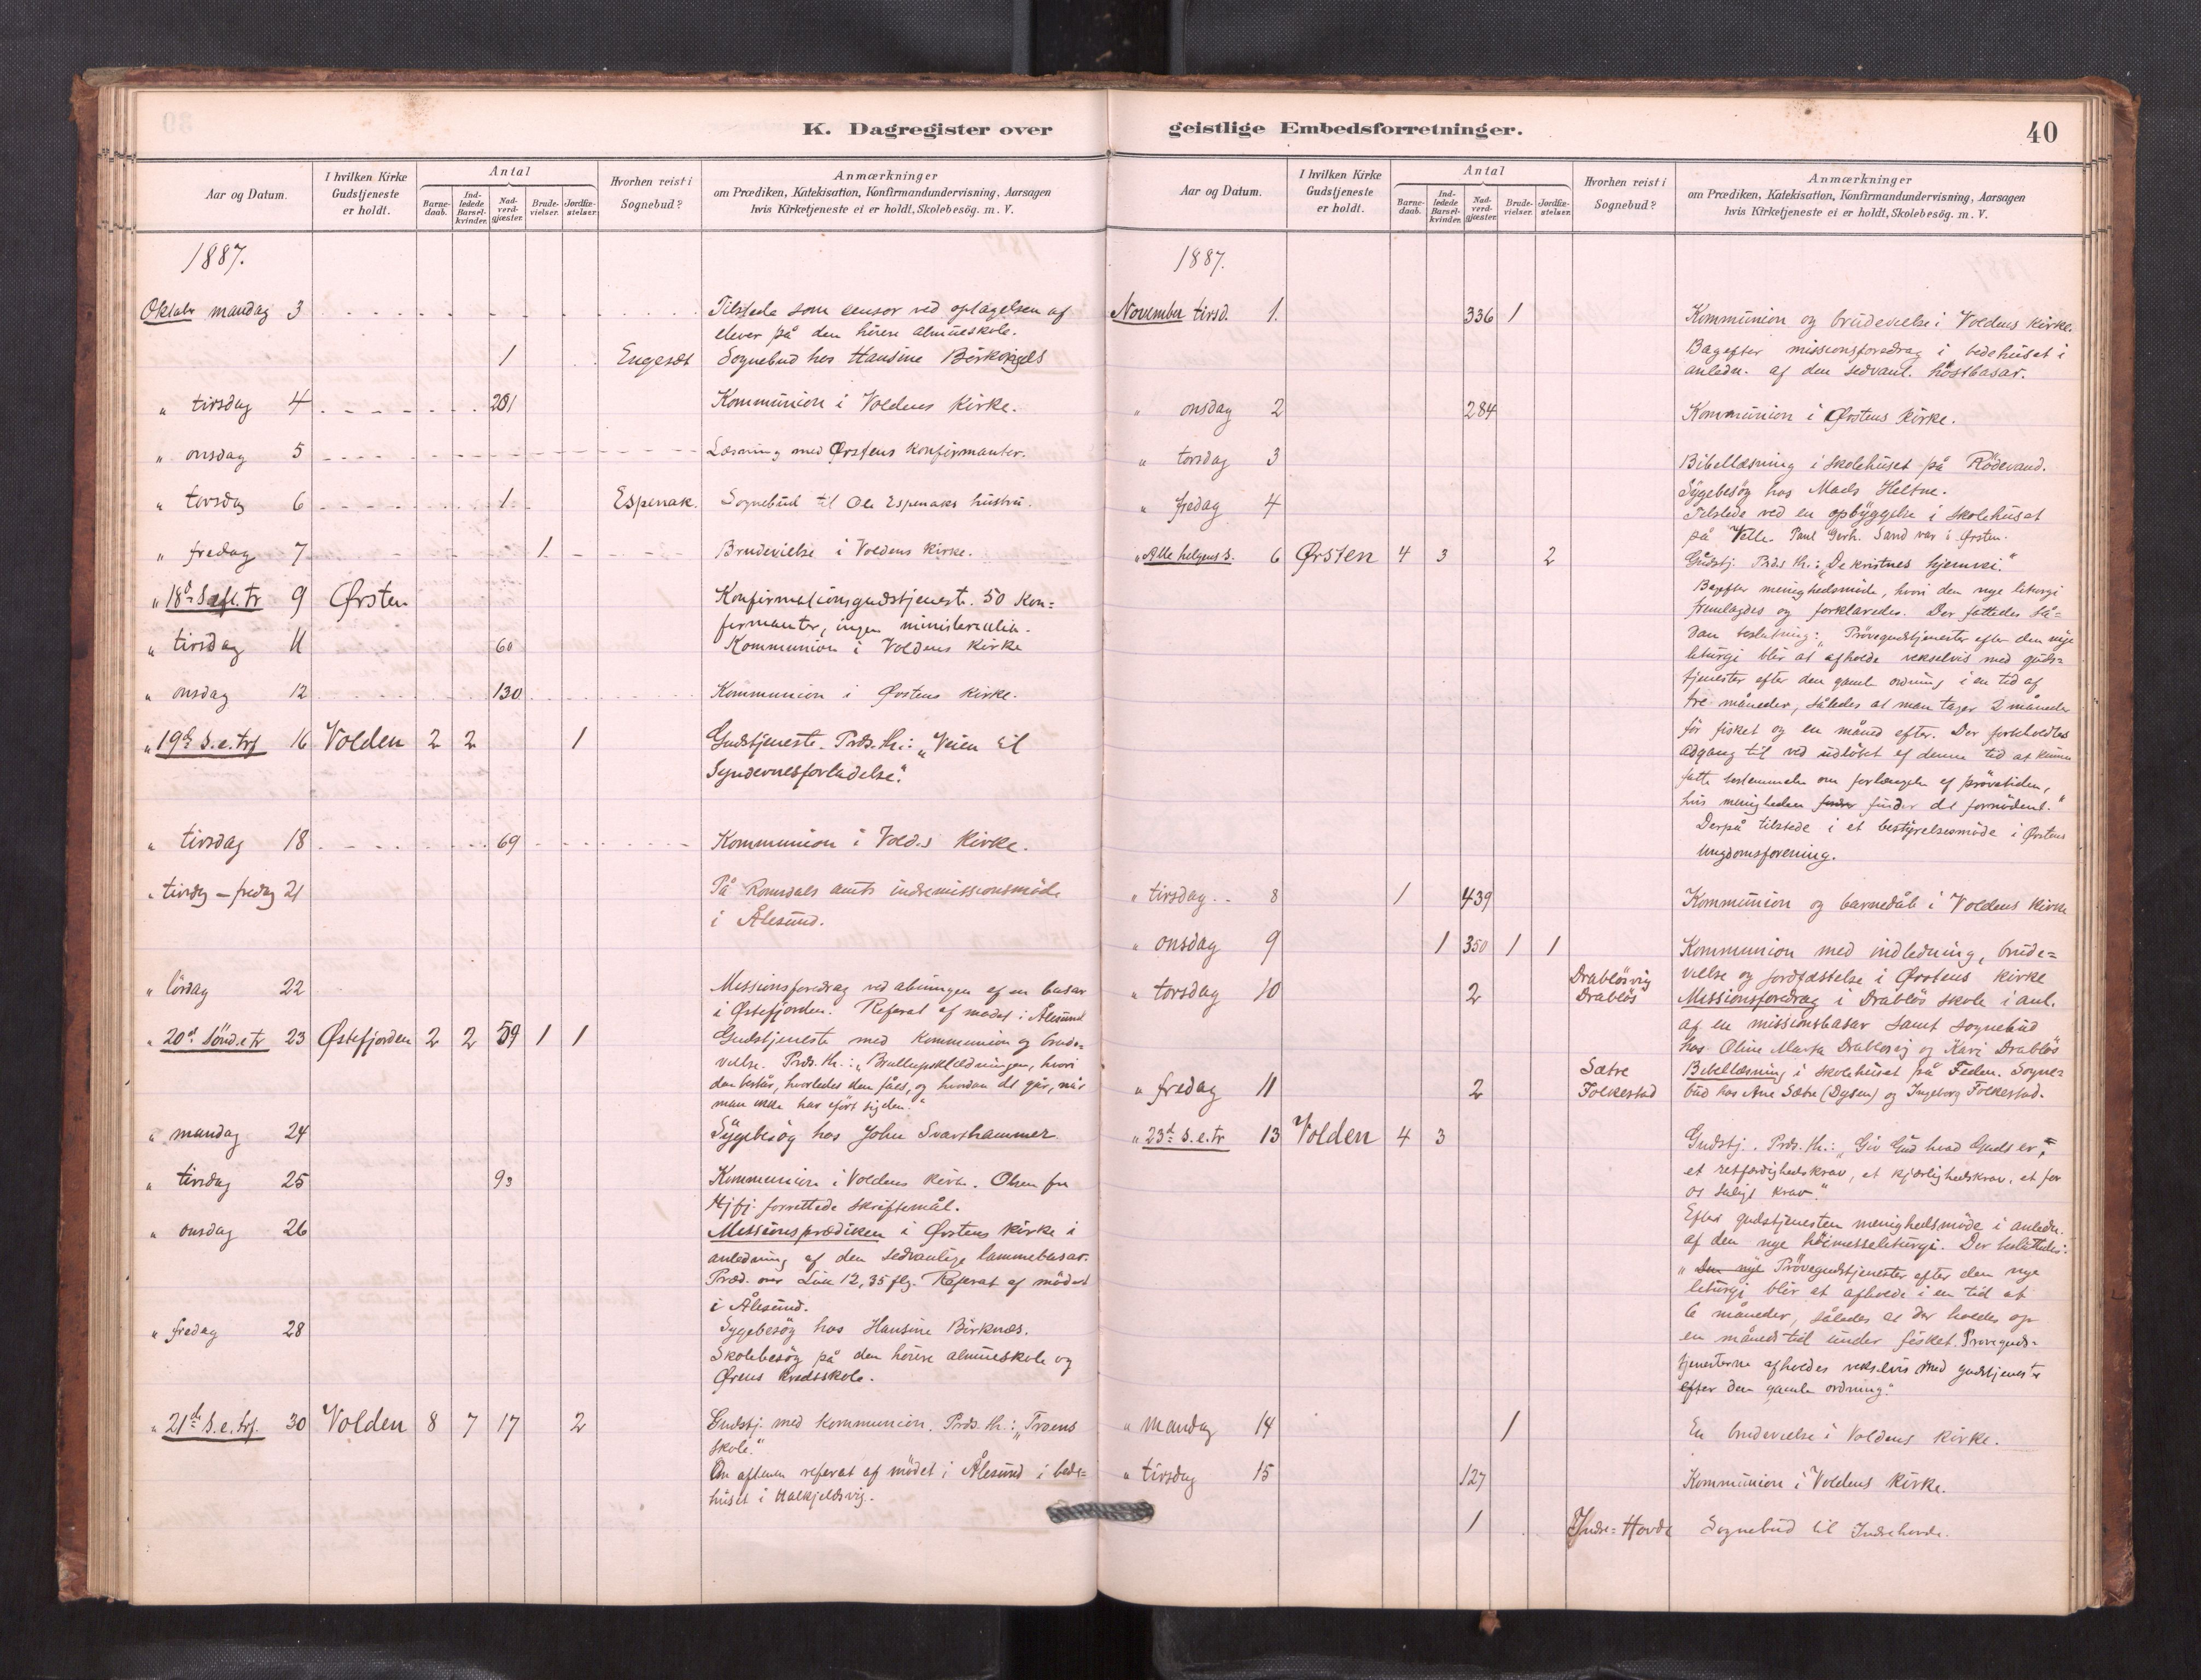 K. Dagregister over
Aar og Datum.
I hvilken Kirke Gudstjeneste er holdt.
Antal
Barne-daab.
Ind-ledede Barsel-kvinder.
Nad-verd-gjæster.
Brude-vielser.
Jordfæ-stelser.
Hvorhen reist i Sognebud?
Anmærkninger
om Prædiken, Katekisation, Konfirmandundervisning, Aarsagen
hvis Kirketjeneste ei er holdt, Skolebesög. m. V.
1887.
Oktobr mandag 3 Tilstede som censor ved optagelsen af
elever på den höiere almueskole.
1 Engesæt Sognebud hos Hansine
" tirsdag 4 201 Kommunion i Voldens Kirke.
" onsdag 5 Læsning med Ørstens Konfirmanter.
" torsdag 6 1 Espenak. Sognebud til Ole Espenaks hustru.
" fredag 7 1 Brudevielse i Voldens Kirke.
" 18d S. ef. tr 9 Ørsten Konfirmationsgudstjeneste. 50 Kon=
firmanter, ingen ministerialia.
" tirsdag 11 60 Kommunion i Voldens Kirke
" onsdag 12 130 Kommunion i Ørstens kirke.
" 19de S. e. trf 16 Volden 2 2 1 Gudstjeneste. Prds. th.: "Veien til
Syndernesforladelse".
" tirsdag 18 69 Kommunion i Vold.s Kirke.
" tirsdg – fredag 21 På Romsdals amts indremissionsmöde
i Ålesund.
" lördag 22 Missionsforedrag ved åbningen af en basar
i Østefjorden. Referat af mödet i Ålesund
" 20de Sönd. e tr 23 Østefjorden 2 2 59 1 1 Gudstjeneste med Kommunion og brude-
vielse. Prds. th.: "Bryllupsklædningen, hvori
den består, hvorledes den fåes, og hvordan det går, når
man ikke har iført sig den."
" mandag 24 Sygebesög hos John Svarthammer
" tirsdag 25 93 Kommunion i Voldens Kirke. Olsen fra
Hjfj. forrettede skriftemål.
" onsdag 26 Missionsprædiken i Ørstens kirke i
anledning af den sedvanlige lammebasar.
Præd. over Luk 12, 35 flg. Referat af mödet
i Ålesund.
" fredag 28 Sygebesög hos Hansine Birknæs.
Skolebesög på den höiere almueskole og
Ørens kredsskole.
" 21de S. e. trf. 30 Volden 8 7 17 2 Gudstj. med kommunion. Prds. th.: "Troens
skole."
Om aftenen referat af mödet i Ålesund i bede=
huset i Halkjeldsvig.
geistlige Embedsforretninger.
40
Aar og Datum.
I hvilken Kirke Gudstjeneste er holdt.
Antal
Barne-daab.
Ind-ledede Barsel-kvinder.
Nad-verd-gjæster.
Brude-vielser.
Jordfæ-stelser.
Hvorhen reist i Sognebud?
Anmærkninger
om Prædiken, Katekisation, Konfirmandundervisning, Aarsagen
hvis Kirketjeneste ei er holdt, Skolebesög. m. V.
1887.
November tirsd. 1. 336 1 Kommunion og brudevielse i Voldens kirke.
Bagefter missionsforedrag i bedehuset i
anledn. af den sedvanl. höstbasar.
" onsdag 2 284 Kommunion i Ørstens Kirke.
" torsdag 3 Bibellæsning i skolehuset på Rödevand.
Sygebesög hos Mads Heltne.
" fredag 4 Tilstede ved en opbyggelse i skolehuset
på Velle. Paul Gerh. Sand var i Ørsten.
" Alle helgens S. 6 Ørsten 4 3 2 Gudstj. Prds th.: "De kristnes hjemvei."
Bagefter menighedsmöde, hvori den nye liturgi
fremlagdes og forklaredes. Der fattedes så=
dan beslutning: "Prövegudstjenester efter den nye
liturgi blir at afholde vekselvis med guds=
tjenester efter den gamle ordning i en tid af
tre måneder, således at man tager 2 måneder
før fisket og en måned efter. Der forbeholdtes
adgang til ved udlöbet af denne tid at kunne
fatte bestemmelse om forlængelse af prövetiden,
hvis menigheden finder det fornödent."
Derpå tilstede i et bestyrelsesmöde i Ørstens
Ungdomsforening.
" tirsdag 8 1 439 Kommunion og barnedåb i Voldens Kirke
" onsdag 9 1 350 1 1 Kommunion med indledning, brude=
vielse og jordfæstelse i Ørstens kirke
" torsdag 10 2 Drablösvig Drablös Missionsforedrag i Drablös skole i anl.
af en missionsbasar samt sognebud
hos Oline Marta Drablösvig og Kari Drablös
" fredag 11 2 Sætre Folkestad Bibellæsning i skolehuset på Feden. Sogne=
bud hos Ane Sætre (Dysen) og Ingeborg Folkestad.
" 23d S. e. tr 13 Volden 4 3 Gudstj. Prds. th.: "Giv Gud hvad Guds er,"
et retfærdighedskrav, et kjærlighedskrav, et for
os saligt krav."
Efter gudstjenesten menighedsmöde i anledn.
af den nye höimesseliturgi. Der besluttedes:
" Den nye Prövegudstjenester efter den nye
liturgi blir at afholde i en tid af
6 måneder, således at der holdes op
en måneds tid under fisket. Prøveguds=
tjenesterne afholdes vekselvis med gudstjenester
efter den gamle ordning."
" Mandag 14 1 En brudevielse i Voldens kirke.
" tirsdag 15 127 Kommunion i Voldens Kirke.
1 Indre=Hovde Sognebud til Indrehovde.